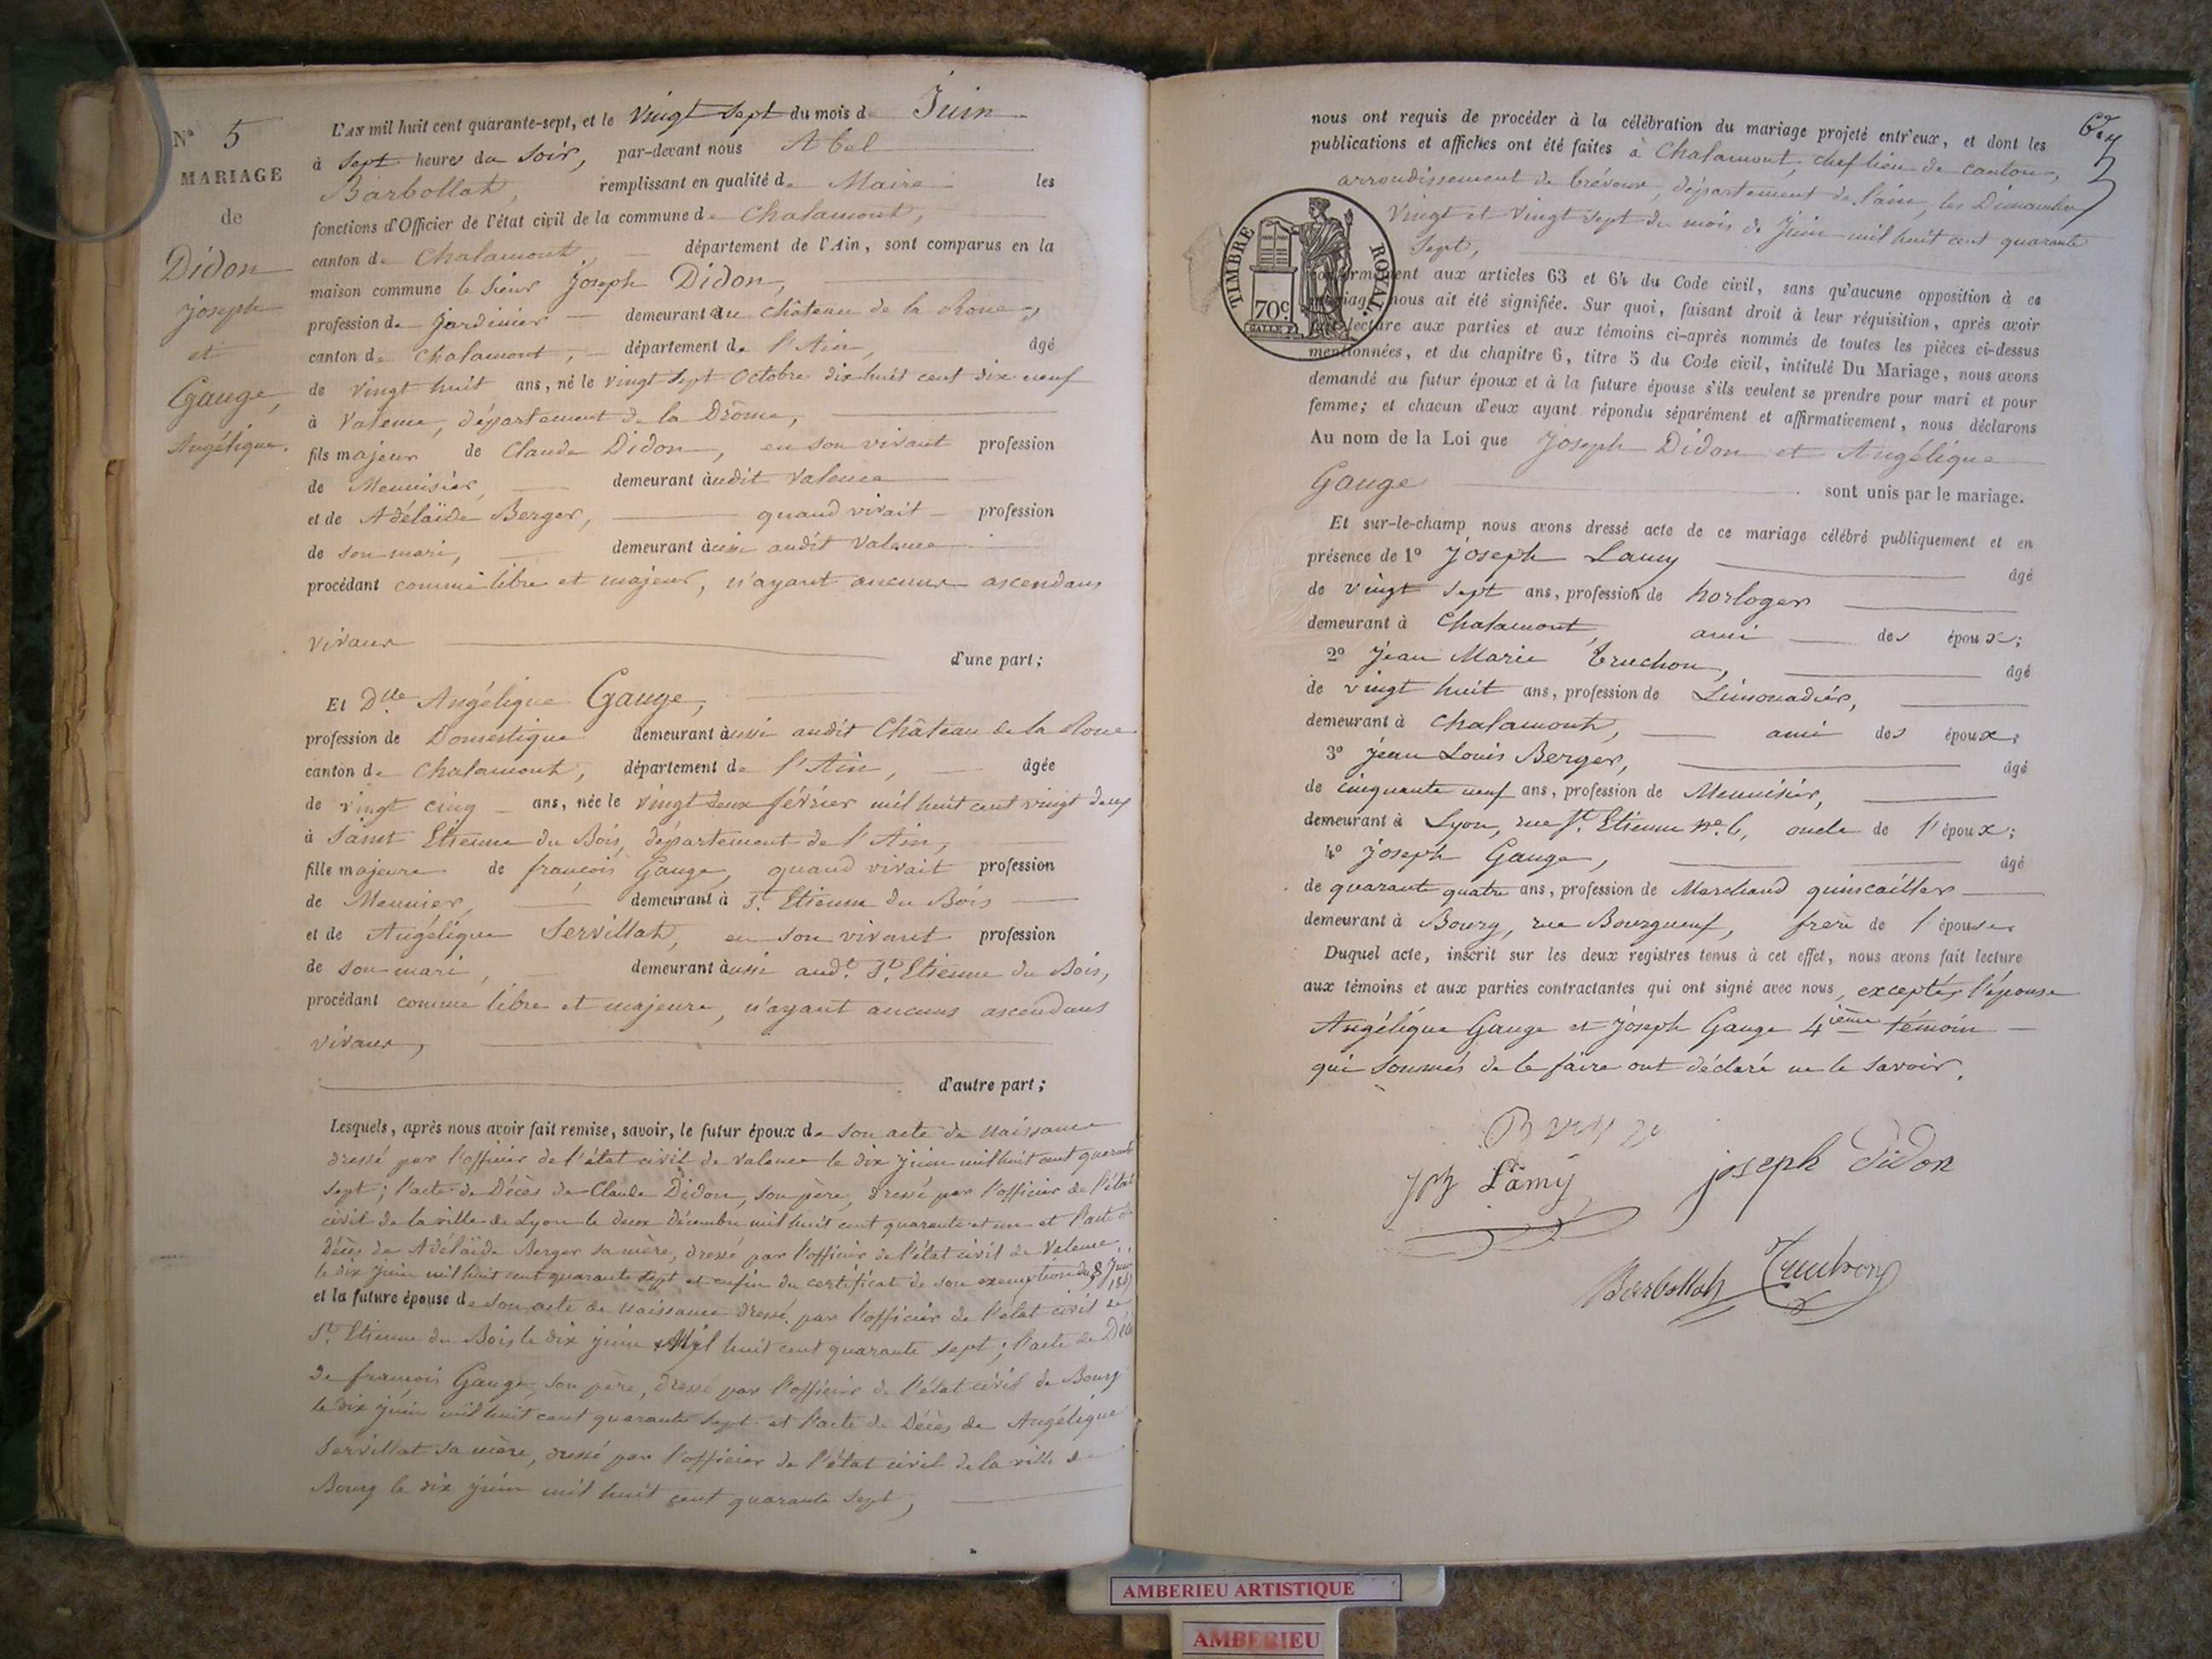 N° 5
MARIAGE
de
Didon
joseph
et
Gauge,
Angélique.
L'AN mil huit cent quarante-sept, et le vingt sept du mois de Juin
à sept heures du soir, par-devant nous Abel
Barbollat, remplissant en qualité de Maire les
fonctions d'Officier de l'état civil de la commune de Chalamont,
canton de Chalamont, département de l'Ain, sont comparus en la
maison commune le sieur Joseph Didon,
profession de jardinier demeurant au château de la Roue,
canton de Chalamont, département de l'Ain, âgé
de vingt huit ans, né le vingt sept Octobre dix huit cent dix neuf
à Valence, département de la Drôme,
fils majeur de Claude Didon, en son vivant profession
de Menuisier, demeurant audit Valence
et de Adélaïde Berger, quand vivait profession
de son mari, demeurant aussi audit Valence
procédant comme libre et majeur, n'ayant aucuns ascendans
vivans
d'une part;
Et Dlle Angélique Gauge,
profession de Domestique demeurant aussi audit Château de la Roue
canton de Chalamont, département de l'Ain, âgée
de vingt cinq ans, née le vingt deux février mil huit cent vingt deux
à Saint Etienne du Bois, département de l'Ain,
fille majeure de françois Gauge, quand vivait profession
de Meunier, demeurant à St. Etienne du Bois
et de Angélique Servillat, en son vivant profession
de son mari, demeurant aussi audt. St. Etienne du Bois,
procédant comme libre et majeure, n'ayant aucuns ascendans
vivans,
d'autre part;
Lesquels, après nous avoir fait remise, savoir, le futur époux de son acte de naissance
dressé par l'officier de l'état civil de Valence le dix juin mil huit cent quarante
sept; l'acte de Décès de Claude Didon, son père, dressé par l'officier de l'état
civil de la ville de Lyon le deux Décembre mil huit cent quarante et un et l'acte de
Décès de Adélaïde Berger sa mère, dressé par l'officier de l'état civil de Valence
le dix juin mil huit cent quarante sept et enfin du certificat de son exemption du 8 Juin 1847
et la future épouse de son acte de naissance dressé par l'officier de l'état civil de
St. Etienne du Bois le dix juin Mil huit cent quarante sept; l'acte de Décès
de françois Gauge son père, dressé par l'officier de l'état civil de Bourg
le dix juin mil huit cent quarante sept et l'acte de Décès de Angélique
Servillat sa mère, dressé par l'officier de l'état civil de la ville de
Bourg le dix juin mil huit cent quarante sept,
nous ont requis de procéder à la célébration du mariage projeté entr'eux, et dont les
publications et affiches ont été faites à Chalamont, chef lieu de canton,
arrondissement de Trévoux, département de l'ain, les Dimanches
vingt et vingt sept du mois de Juin mil huit cent quarante
sept,
TIMBRE ROYAL.
70c.
conformément aux articles 63 et 64 du Code civil, sans qu'aucune opposition à ce
mariage nous ait été signifiée. Sur quoi, faisant droit à leur réquisition, après avoir
fait lecture aux parties et aux témoins ci-après nommés de toutes les pièces ci-dessus
mentionnées, et du chapitre 6, titre 5 du Code civil, intitulé Du Mariage, nous avons
demandé au futur époux et à la future épouse s'ils veulent se prendre pour mari et pour
femme; et chacun d'eux ayant répondu séparément et affirmativement, nous déclarons
Au nom de la Loi que Joseph Didon et Angélique
Gauge sont unis par le mariage.
Et sur-le-champ nous avons dressé acte de ce mariage célébré publiquement et en
présence de 1° Joseph Lamy âgé
de vingt sept ans, profession de horloger
demeurant à Chalamont, ami des époux;
2° Jean Marie Truchon, âgé
de vingt huit ans, profession de Limonadier,
demeurant à Chalamont, ami des époux;
3° Jean Louis Berger, âgé
de cinquante neuf ans, profession de Menuisier,
demeurant à Lyon, rue St. Etienne no. 6, oncle de l'époux;
4° Joseph Gauge, âgé
de quarante quatre ans, profession de Marchand quincailler
demeurant à Bourg, rue Bourgneuf, frère de l'épouse.
Duquel acte, inscrit sur les deux registres tenus à cet effet, nous avons fait lecture
aux témoins et aux parties contractantes qui ont signé avec nous, exceptés l'épouse
Angélique Gauge et Joseph Gauge 4ième témoin
qui sommés de le faire ont déclaré ne le savoir.
Lamy joseph didon
Barbollat Truchon
AMBERIEU ARTISTIQUE
AMBERIEU